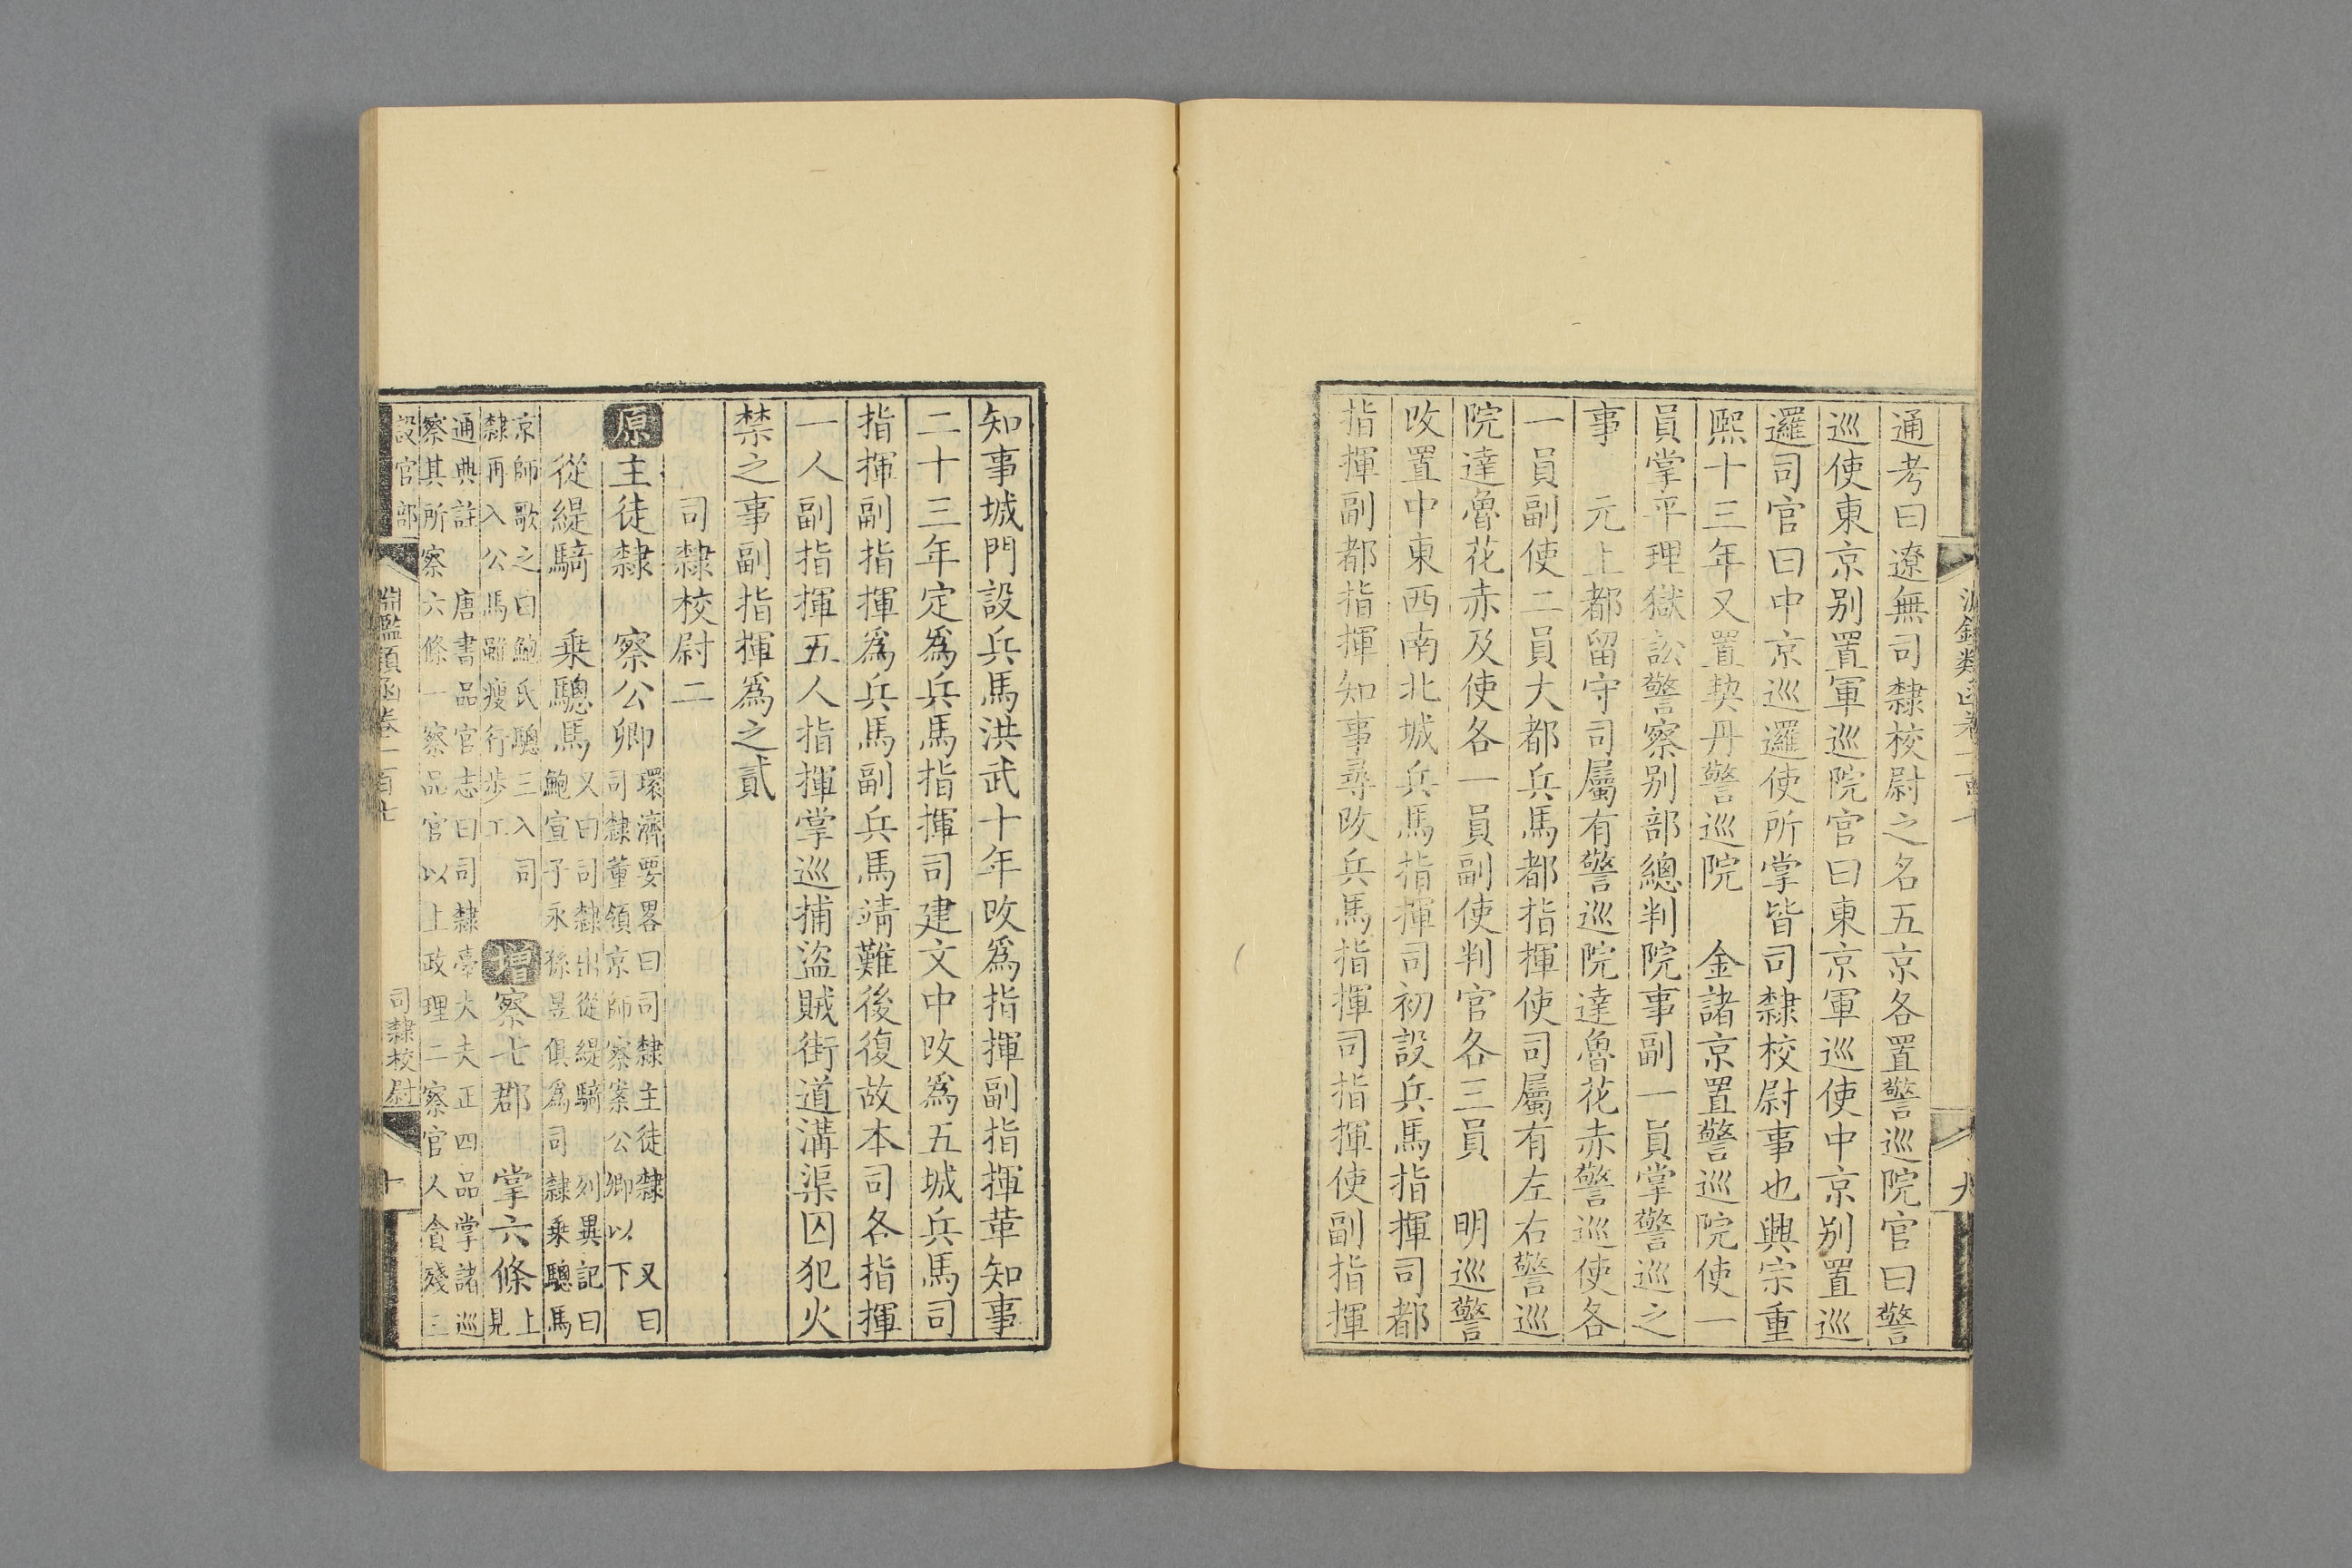 通考曰遼無司隸校尉之名五京各置警巡院官曰警
巡使東京别置軍巡院官曰東京軍巡使中京别置巡
邏司官曰中京巡邏使所掌皆司隸校尉事也興宗重
熙十三年又置契丹警巡院　金諸京置警巡院使一
員掌平理獄訟警察别部總判院事副一員掌警巡之
事　元上都留守司屬有警巡院達魯花赤警巡使各
一員副使二員大都兵馬都指揮使司屬有左右警巡
院達魯花赤及使各一員副使判官各三員　明巡警
改置中東西南北城兵馬指揮司初設兵馬指揮司都
指揮副都指揮知事尋改兵馬指揮司指揮使副指揮
知事城門設兵馬洪武十年改爲指揮副指揮革知事
二十三年定爲兵馬指揮司建文中改爲五城兵馬司
指揮副指揮爲兵馬副兵馬靖難後復故本司各指揮
一人副指揮五人指揮掌巡捕盜賊街道溝渠囚犯火
禁之事副指揮爲之貳
司隸校尉二
原主徒隸　察公卿環濟要畧曰司隸主徒隸　又曰
司隸董領京師察案公卿以下
從緹騎　乗驄馬又曰司隸出從緹騎　列異記曰
鮑宣子永孫昱俱爲司隸乗驄馬
京師歌之曰鮑氏驄三入司
隸再入公馬雖瘦行步工　增察七郡　掌六條上
見
通典註　唐書品官志曰司隸臺大夫正四品掌諸巡
察其所察六條一察品官以上政理二察官人貪殘三
設官部
淵鑑類函卷一百七
司隸校尉
十